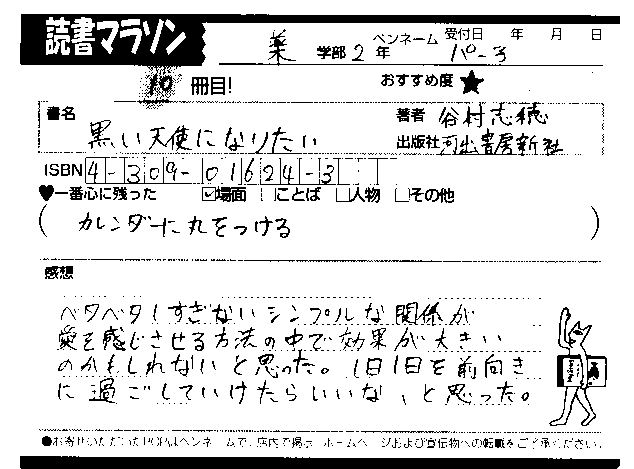 読書マラソン
薬 学部 2 年 ペンネーム パーヲ 受付日 年 月 日
10 冊目! おすすめ度 ★
書名 黒い天使になりたい
著者 谷村志穂
出版社 河出書房新社
ISBN 4-309-01624-3
♥一番心に残った ☑場面 □ことば □人物 □その他
(カレンダーに丸をつける)
感想
ベタベタしすぎないシンプルな関係が
愛を感じさせる方法の中で効果が大きい
のかもしれないと思った。1日1日を前向き
に過ごしていけたらいいな、と思った。
●お寄せいただいたPOPはペンネームで、店内で掲示・ホームページおよび宣伝物への転載をご了承ください。